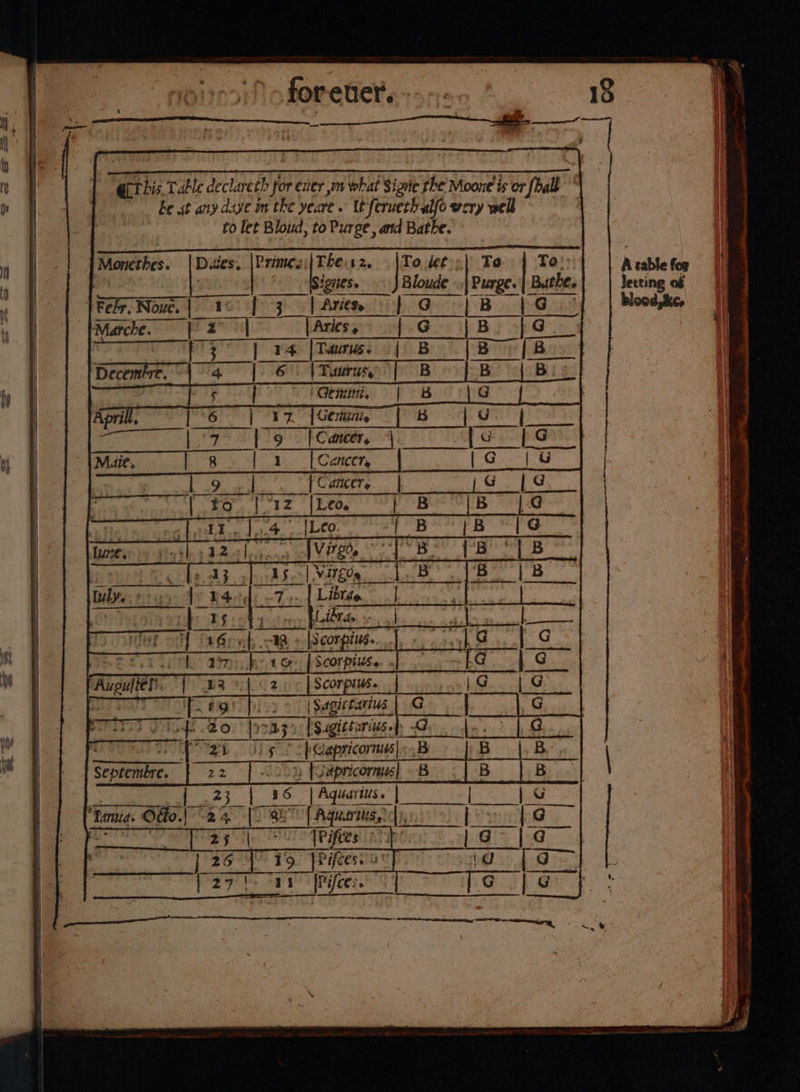 for euer. 18
¶This Table declareth for euer, in what Signe the Moone is or shall
be at any daye in the yeare. It serueth also very well
to let Bloud, to Purge, and Bathe.
Monethes. Daies. Primes. The 12. To let To To
Signes. Bloude Purge. Bathe.
Febr. Noue. 1 3 Aries, G B G
Marche. 2 Aries, G B G
3 14 Taurus. B B B
Decembre. 4 6 Taurus, B B B
5 Gemini, B G
Aprill, 6 17 Gemini, B G
7 9 Cancer, G G
Maie, 8 1 Cancer, G G
9 Cancer, G G
10 12 Leo, B B G
11 4 Leo. B B G
Iune, 12 Virgo, B B B
13 15 Virgo, B B B
Iuly. 14 7 Libra.
15 Libra.
16 18 Scorpius. G G
17 10 Scorpius. G G
August 18 2 Scorpius. G G
19 Sagittarius G G
20 13 Sagittarius. G G
21 5 Capricornus B B B
Septembre. 22 Capricornus B B B
23 16 Aquarius. G
Ianua. Octo. 24 8 Aquarius, G
25 Pisces G G
26 19 Pisces. G G
27 11 Pisces. G G
A table for
letting of
blood,&c.